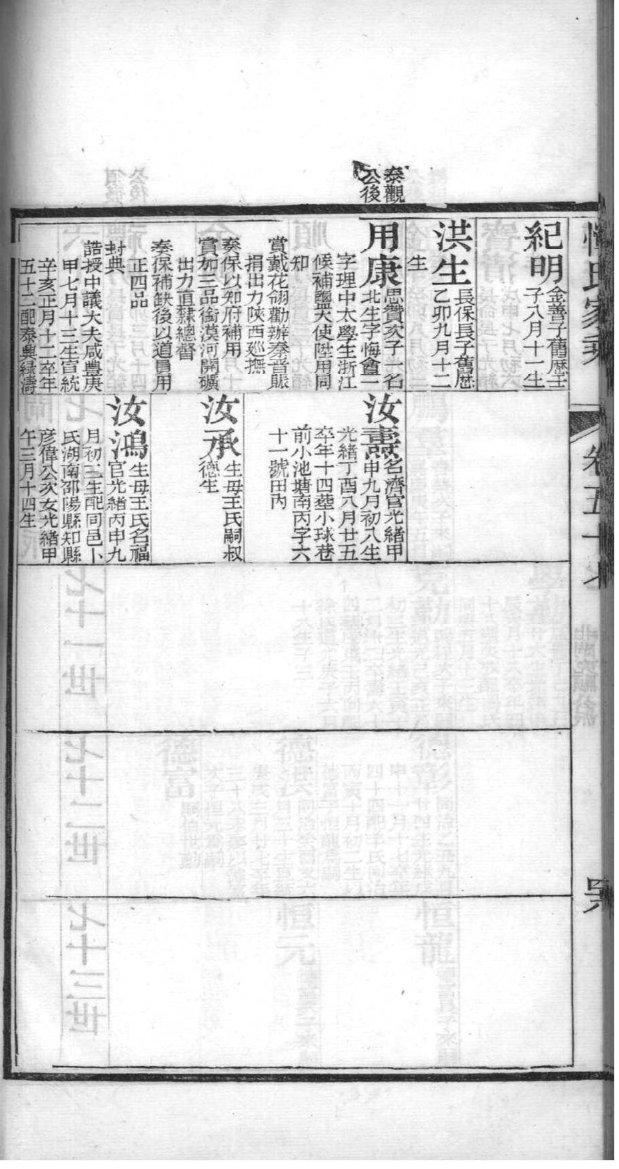 泰觀
公後
紀明
金善子舊歷壬
子八月十一生
洪生
長保長子舊歷
乙卯九月十二
生
用康
思贊次子一名
北生字悔盦一
字理中太學生浙江
候補鹽大使陞用同
知
賞戴花翎勸辦秦晉賑
捐出力陝西巡撫
奏保以知府補用
賞加三品銜漠河開礦
出力直隸總督
奏保補缺後以道員用
正四品
封典
誥授中議大夫咸豐庚
申七月十三生宣統
辛亥正月十二卒年
五十二配泰興
汝燾
名濟官光緒甲
申九月初八生
光緒丁酉八月廿五
卒年十四塟小球巷
前小池塘南丙字六
十一號田內
汝承
生母王氏嗣叔
德生
汝鴻
生母王氏名福
官光緒丙申九
月初三生配同邑卜
氏湖南邵陽縣知縣
彥偉公次女光緒甲
午三月十四生